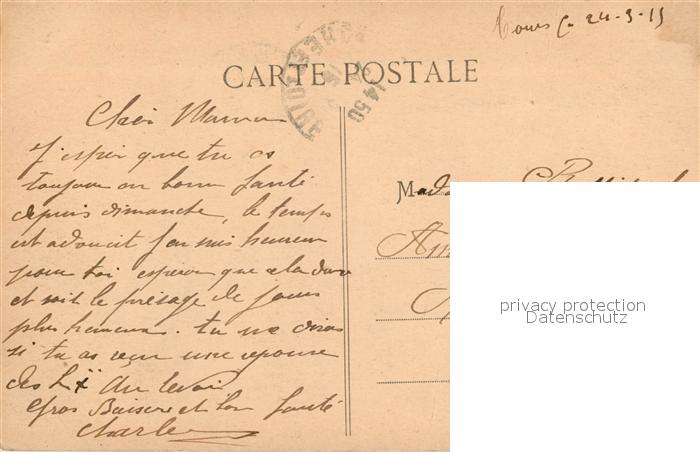 Tours le 24-3-15
CARTE POSTALE
14 50
Cher Maman
J'espere que tu as
toujour on bonne santé
depuis dimanche, le temps
est adoucit j'en suis heureux
pour toi esperon que cela dure
et soit le présage de jours
plus heureux. tu me diras
si tu as reçu une reponse
des Au revoir
Gros Baisers et bon santé
Charles
Mada
privacy protection
Datenschutz